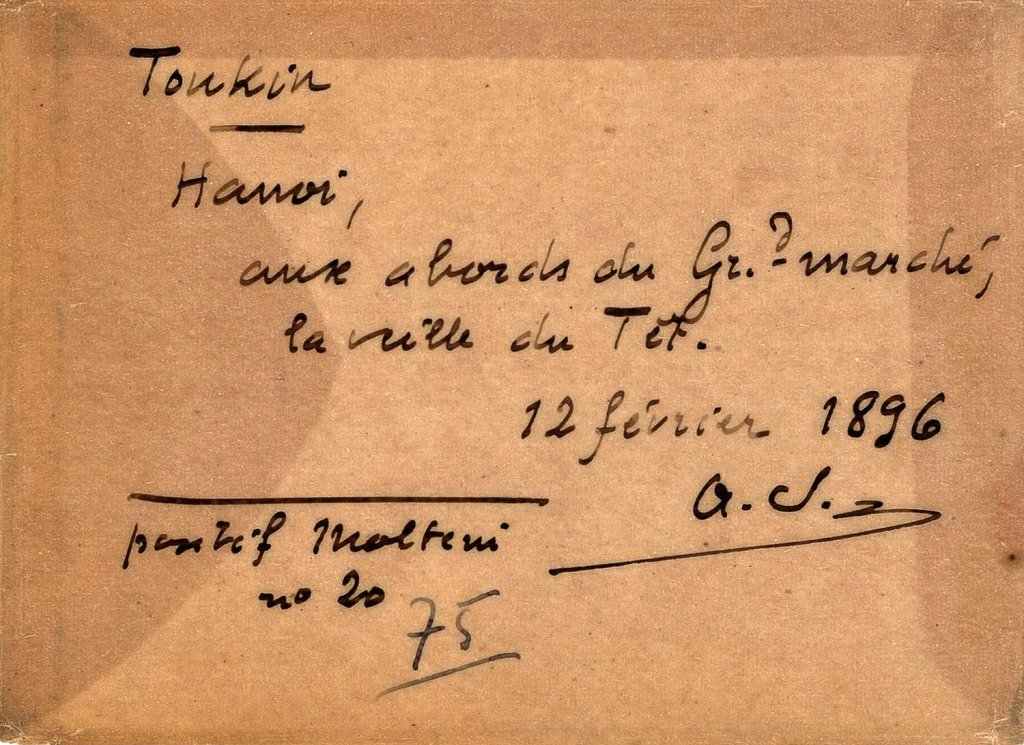 Tonkin
Hanoi,
aux abords du Gr.d marché,
la veille du Têt.
12 février 1896
A. S.
positif Molteni
no 20
75